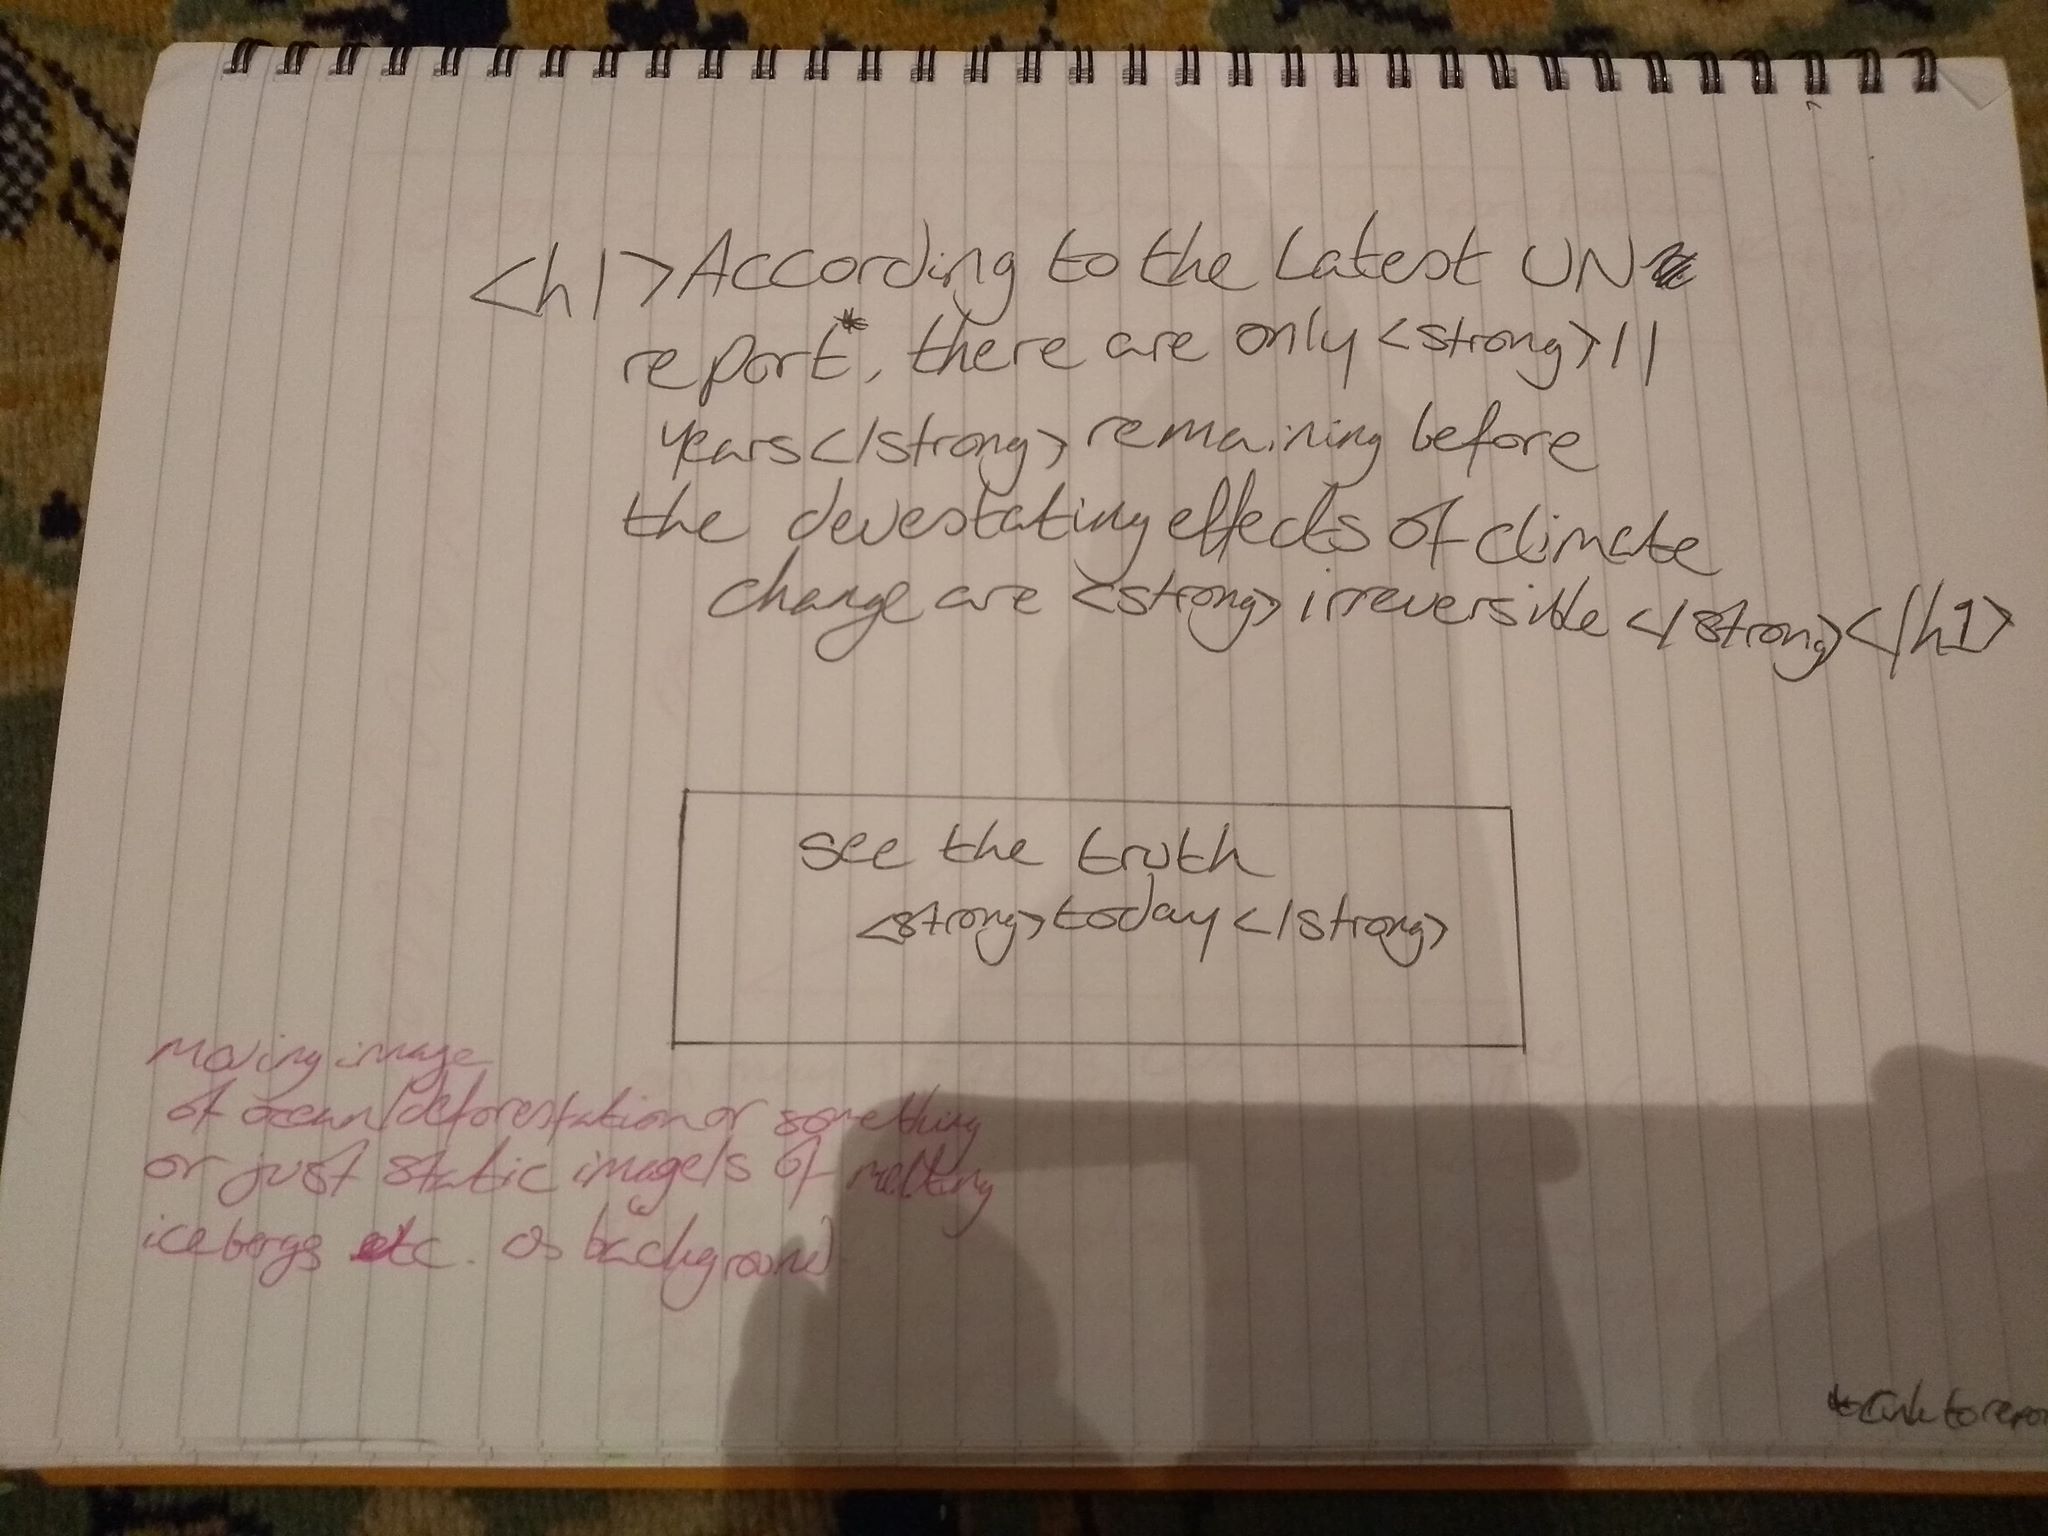 <h1>According to the Latest UN
report*, there are only <strong>11
years</strong> remaining before
the devestating effects of climate
change are <strong>irreversible</strong></h1>
see the truth
<strong>today</strong>
moving image
of ocean/deforestation or something
or just static image/s of melting
icebergs etc. as background.
*link to repor